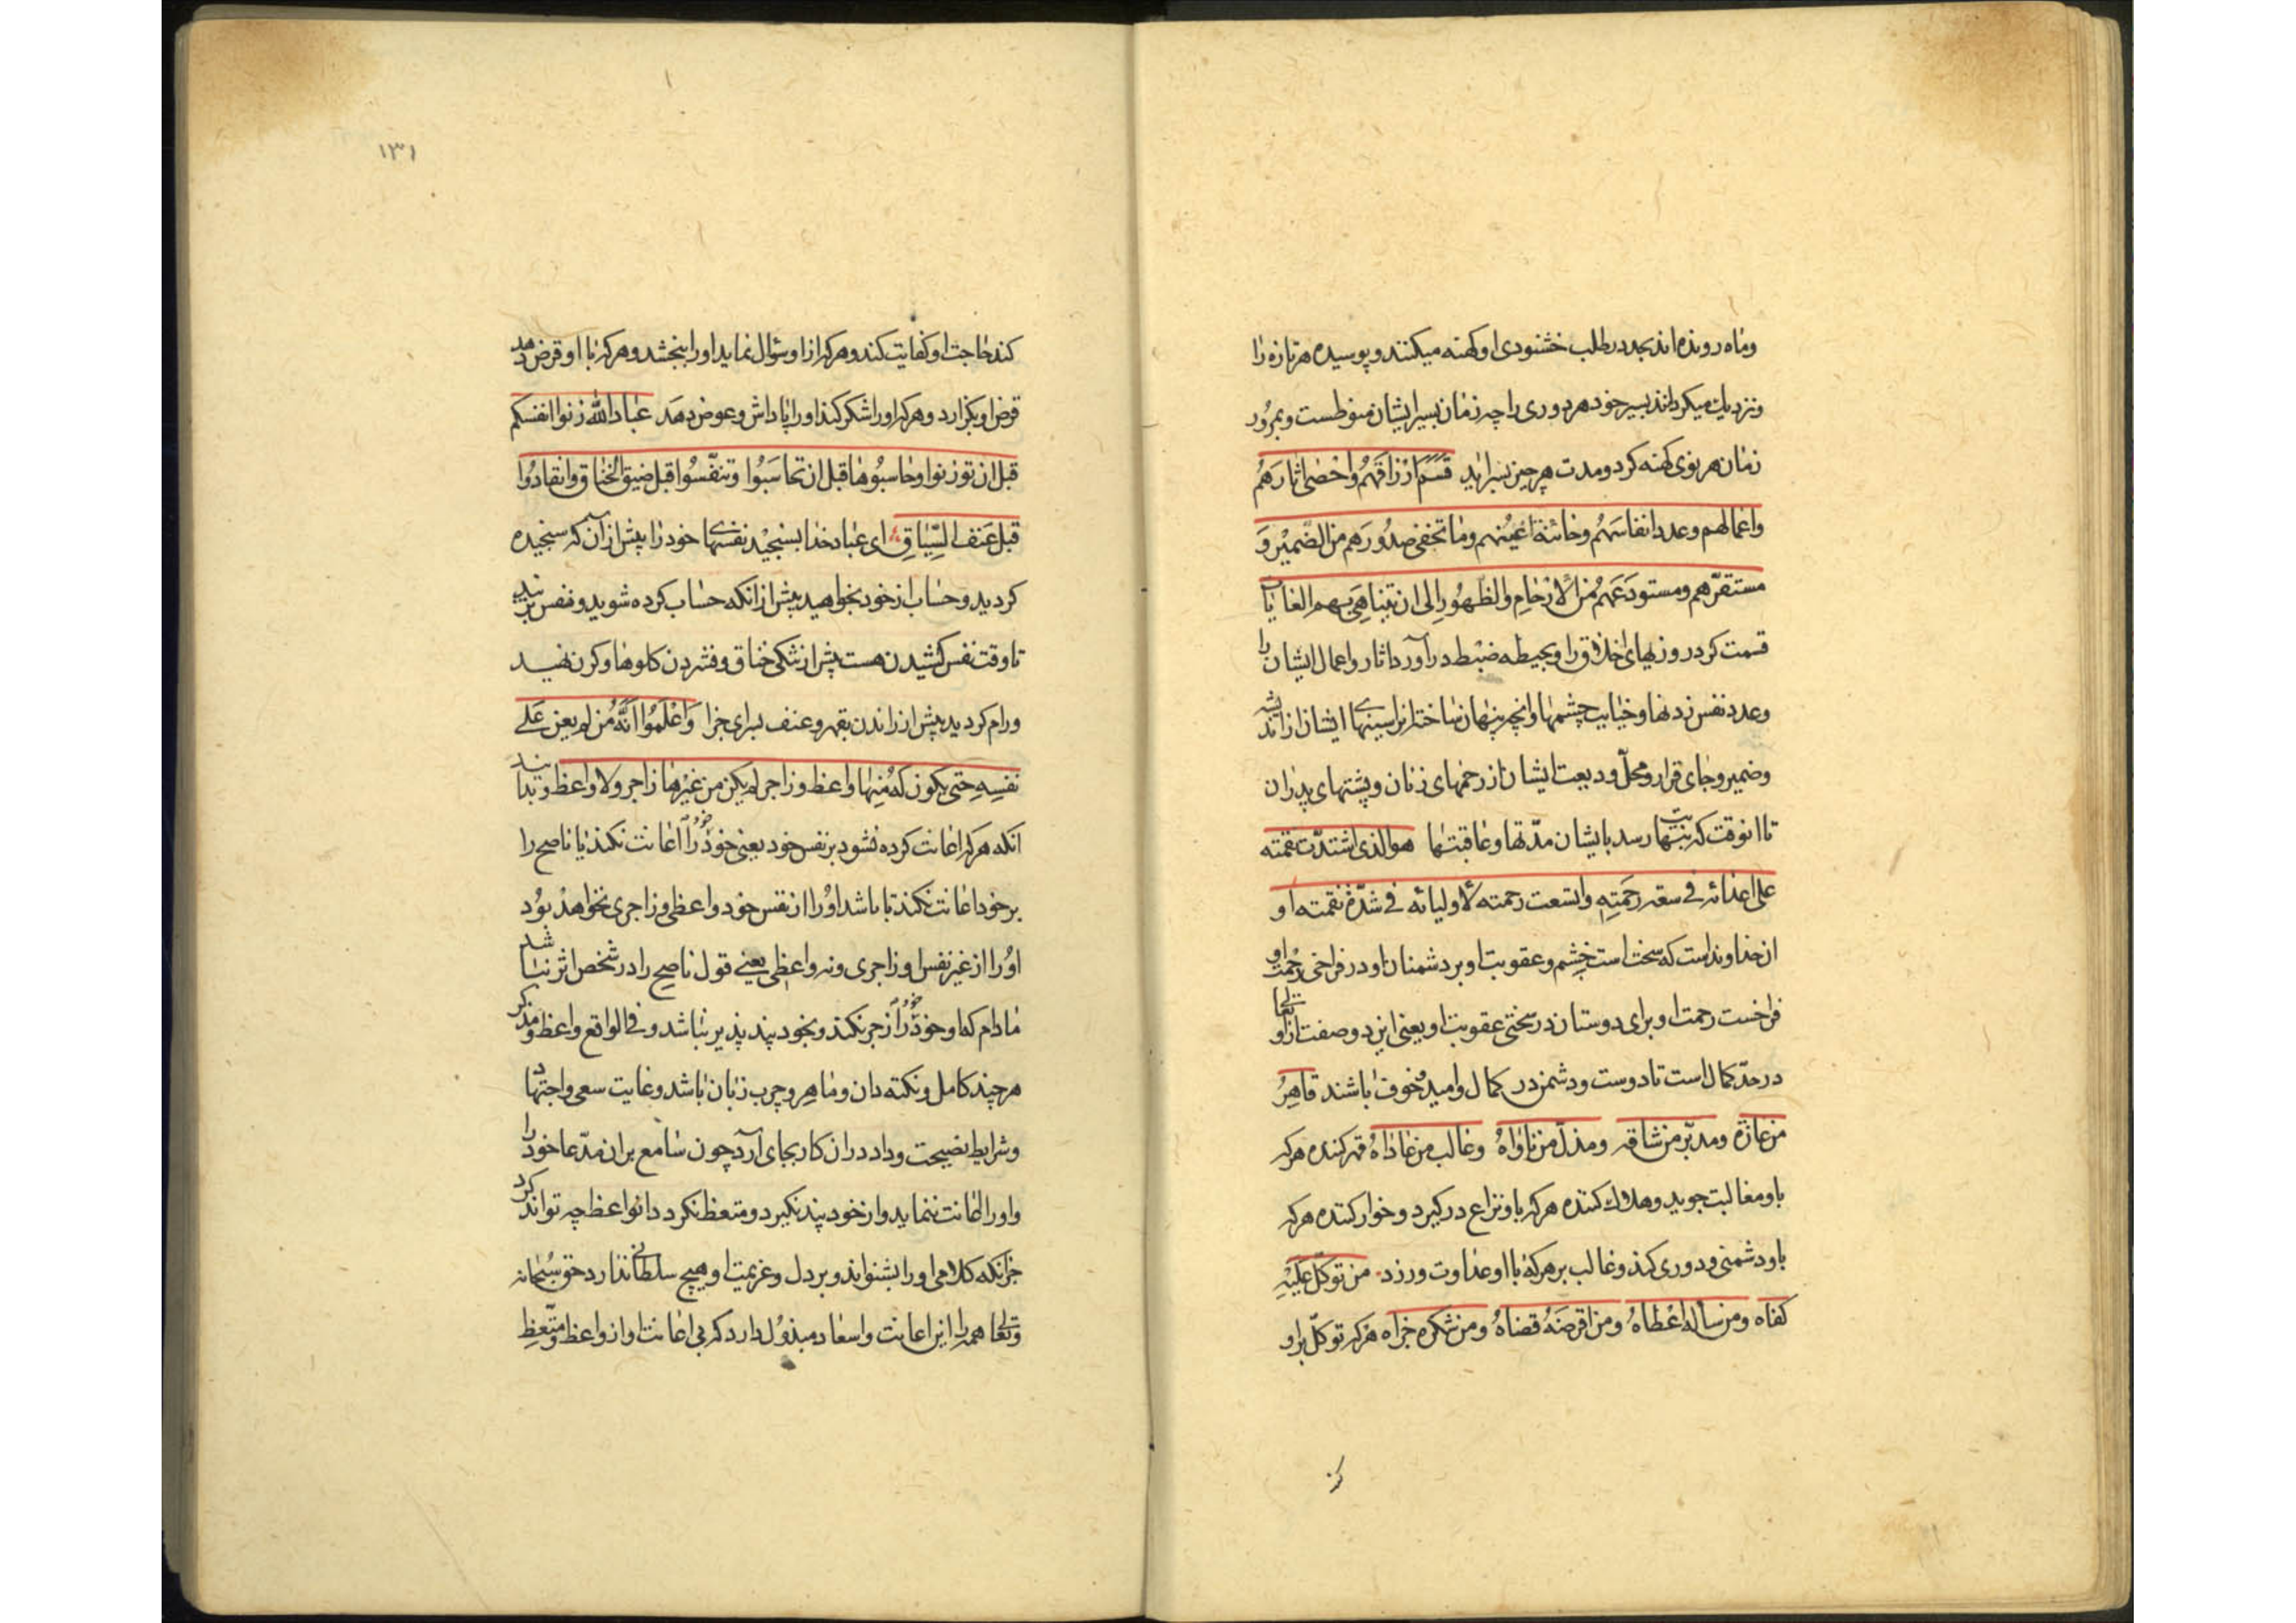 وماه رونده اند بجد در طلب خشنودی او کهنه میکنند و پوسیده هر تازه را
و نزدیك میکردانند بسیر خود هر دوری را چه زمان بسیر ایشان منوطست و بمرور
زمان هر نوی کهنه کردد و مدت هر چیز بسر اید قسم ارزاقهم واحصی اثارهم
واعمالهم وعدد انفاسهم وخائنة اعینهم وما تخفی صدورهم من الضمیر و
مستقرّهم ومستودعهم من الارحام والظهور الی ان تتناهی بهم الغایات
قسمت کرد روزیهای خلاق را و بحیطه ضبط در آورد اثار و اعمال ایشان را
وعدد نفس زدنها و خیانت چشمها و انچه پنهان ساخته انرا سینهای ایشان از اندیشه
وضمیر و جای قرار و محلّ ودیعت ایشان از رحمهای زنان و پشتهای پدران
تا انوقت که بنهایت رسد بایشان مدّتها و عاقبتها هو الذی اشتدّت نقمته
علی اعدائه فی سعة رحمته واتسعت رحمته لاولیائه فی شدّة نقمته او
ان خداونداست که سخت است خشم و عقوبت او بر دشمنان او در فراخی رحمت او
فراخست رحمت او برای دوستان در سختی عقوبت او یعنی این دو صفت از او تعالی
در حدّ کمال است تا دوست و دشمن در کمال امید و خوف باشند قاهر
من عازّه ومدبّر من شاقه ومذلّ من ناواه وغالب من عاداه قهر کننده هر که
باو مغالبت جوید و هلاك کننده هر که باو نزاع در کیرد و خوار کننده هر که
باو دشمنی و دوری کند و غالب بر هر که با او عداوت ورزد من توکّل علیه
کفاه ومن سأله اعطاه ومن اقرضه قضاه ومن شکره جزاه هر که توکّل بر او
کند
۱۳۱
کند حاجت او کفایت کند و هر که از او سؤال نماید او را ببخشد و هر که با او قرض دهد
قرض او بکزارد و هر که او را شکر کند او را پاداش و عوض دهد عباد الله زنوا انفسکم
قبل ان توزنوا وحاسبوها قبل ان تحاسبوا وتنفّسوا قبل ضیق الخناق وانقادوا
قبل عنف السّیاق ای عباد خدا بسنجید نفسهای خود را پیش از آن که سنجیده
کردید و حساب از خود بخواهید پیش از انکه حساب کرده شوید و نفس بزنید
تا وقت نفس کشیدن هست پیش از تنکی خناق و فشردن کلوها و کردن نهید
ورام کردید پیش از راندن بقهر و عنف برای جزا واعلموا انّه من لم یعن علی
نفسه حتی یکون له منها واعظ وزاجر لم یکن من غیرها زاجر ولا واعظ و بدانید
انکه هر که اعانت کرده نشود بر نفس خود یعنی خود خود را اعانت نکند یا ناصح را
بر خود اعانت نکند تا باشد او را از نفس خود واعظی و زاجری نخواهد بود
او را از غیر نفس او زاجری و نه واعظی یعنی قول ناصح را در شخص اثر نباشد
مادام که او خود خود را زجر نکند و بخود پند پذیر نباشد و فی الواقع واعظ و مذکر
هر چند کامل و نکته دان و ماهر و چرب زبان باشد و غایت سعی و اجتهاد
و شرایط نصیحت و داد در ان کار بجای آرد چون سامع بر ان مدّعا خود را
و او را اعانت ننماید و از خود پند نکیرد و متعظ نکردد انواعظ چه تواند کرد
جز انکه کلامی او را بشنواند و بر دل و عزیمت او هیچ سلطانی ندارد حق سبحانه
وتعالی همه را این اعانت و اسعاد مبذول دارد که بی اعانت او از واعظ و متّعظ